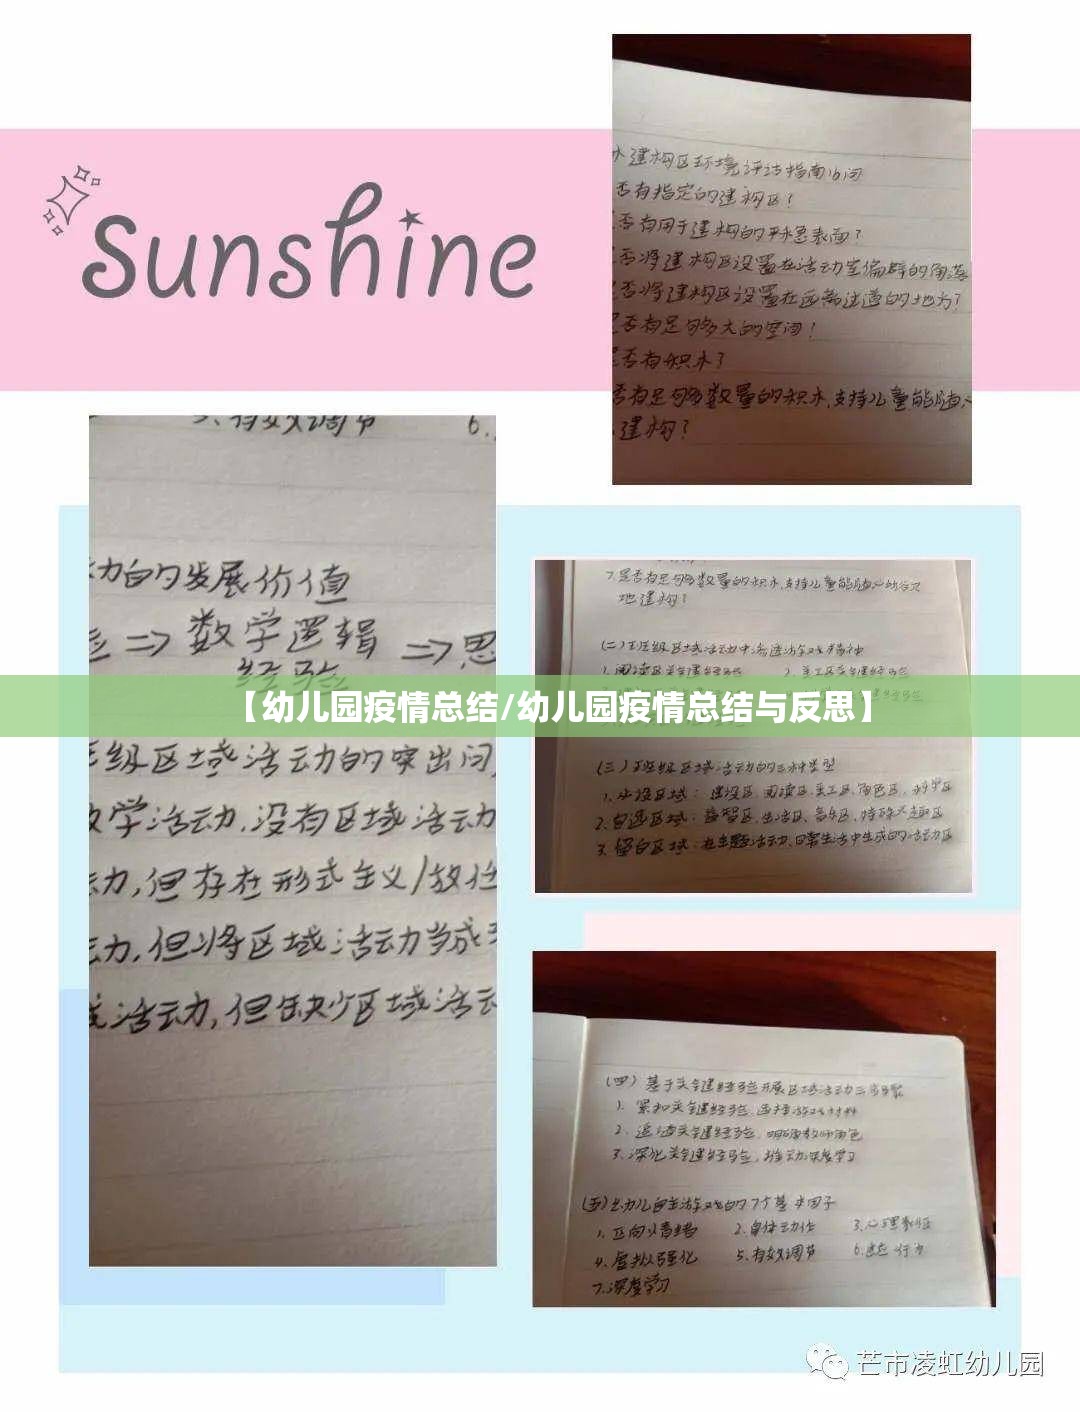 Sunshine
建构区环境评估指南的问
否有指定的建构区?
否有用于建构的平整表面?
否将建构区设置在活动室偏僻的角落
否将建构区设置在远离过道的地方?
是否有足够多大的空间!
是否有积木?
否有足够多数量的积木,支持儿童能随心
建构?
有效调节
6.
动的发展价值
⇒数学逻辑⇒思
经验
班级区域活动的突出问
教学活动,没有区域活动
动,但存在形式主义/放任
动,但将区域活动当成
活动,但缺少区域活动
7.是否有足够多数量的积木,支持儿童能随心所欲
地建构?
(二)班级区域活动中
1.阅读区关键经验 2.美工区关键经验
【幼儿园疫情总结/幼儿园疫情总结与反思】
(三)班级区域活动的三种类型
1.必设区域:建设区、阅读区、美工区、角色区、科学区
2.自选区域:益智区、生活区、音乐区、特殊兴趣区
3.留白区域:在主题活动、日常生活中生成的活动区
(四)基于关键经验开展区域活动三步骤
1.累积关键经验,选择游戏材料
2.追渣关键经验,明确教师角色
3.深化关键经验,推动深度学习
(五)幼儿自主游戏的7个基本因子
1.正向情绪 2.身体动作 3.心理表征
4.虚拟强化 5.有效调节 6.行为
7.深度学习
芒市凌虹幼儿园